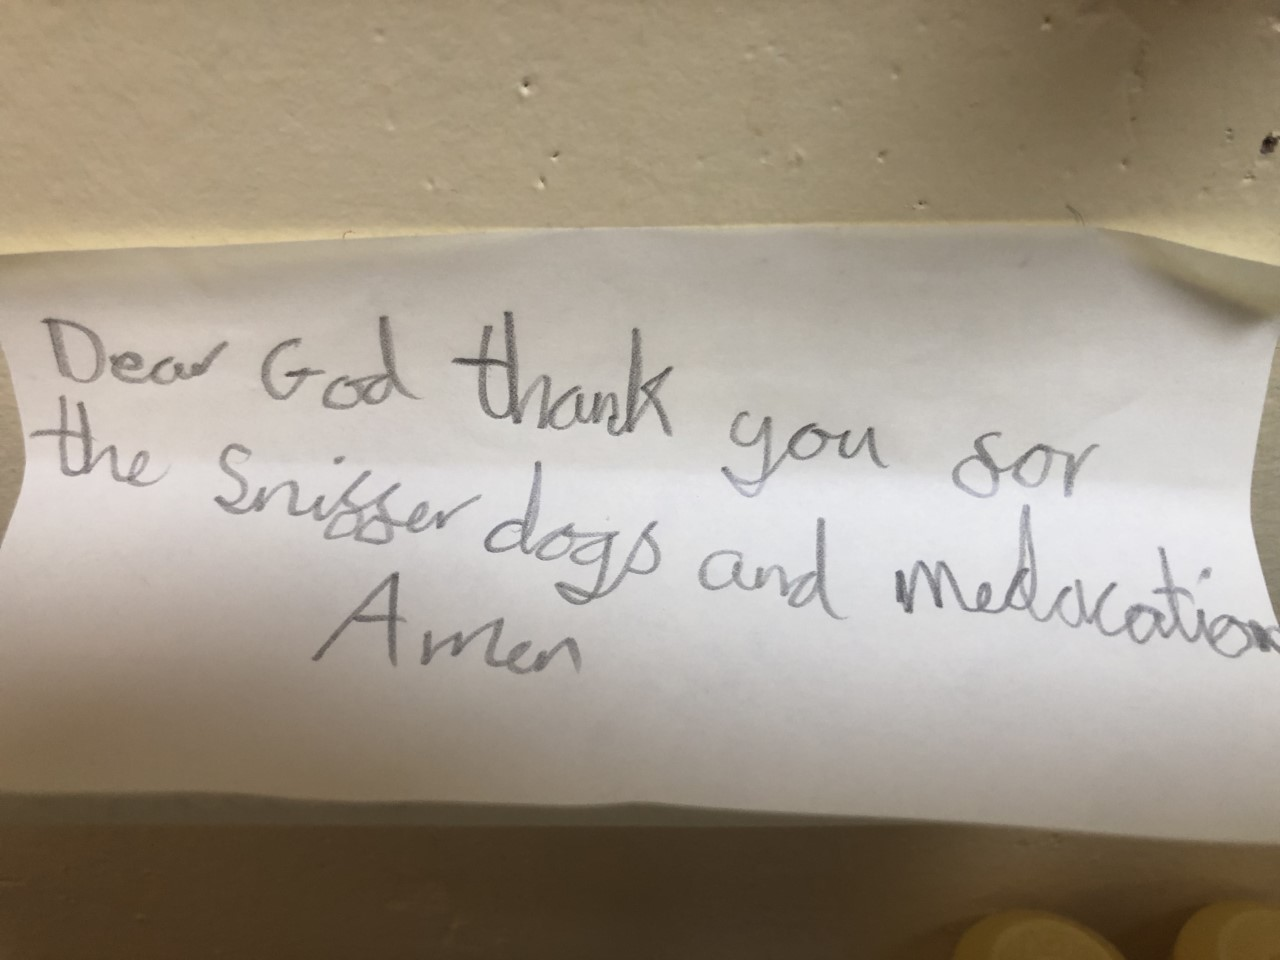 Dear God thank you for
the Sniffer dogs and medacation
Amen